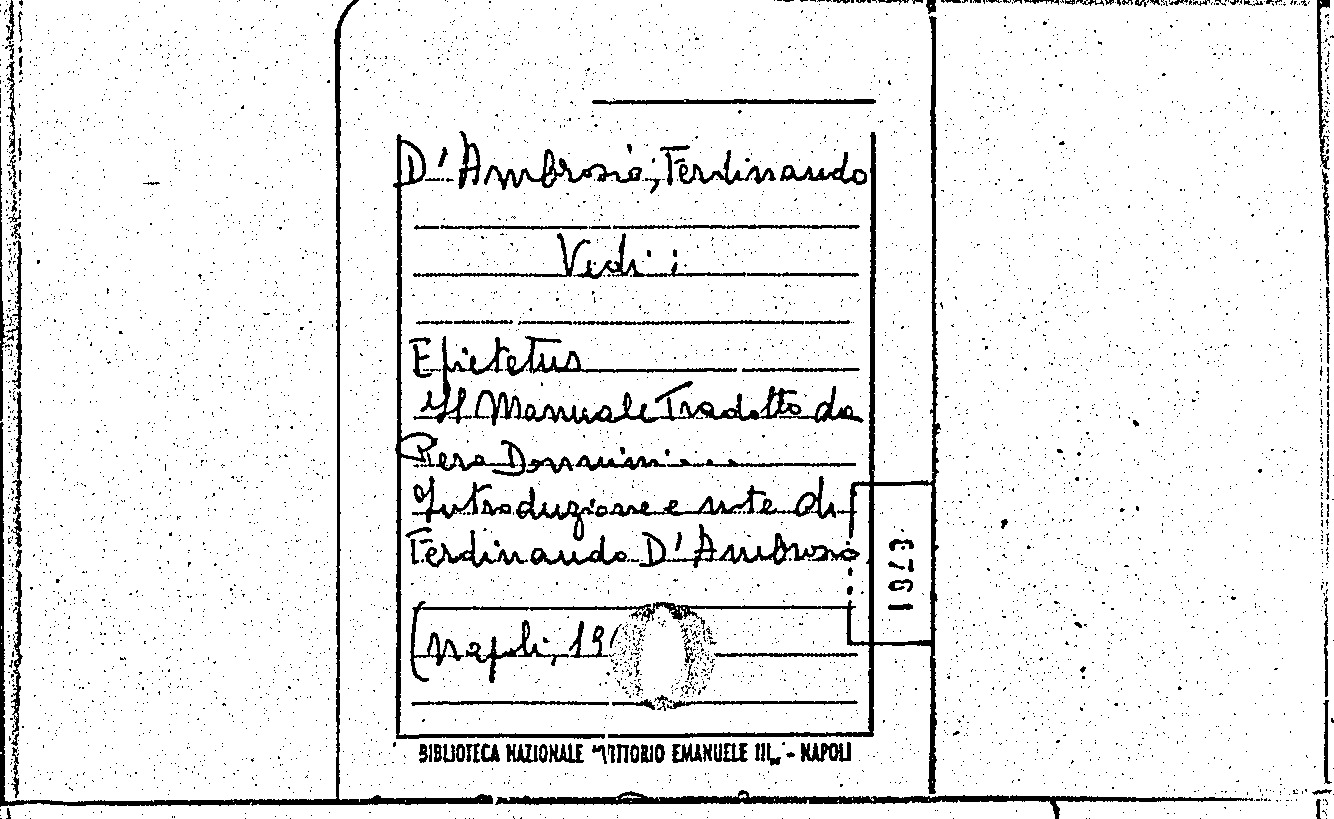 D'Ambrosio, Ferdinando
Vedi:
Epictetus
Il Manuale Tradotto da
Piero Donnini....
Introduzione e note di
Ferdinando D'Ambrosio
(Napoli, 19
BIBLIOTECA NAZIONALE "VITTORIO EMANUELE III" - NAPOLI